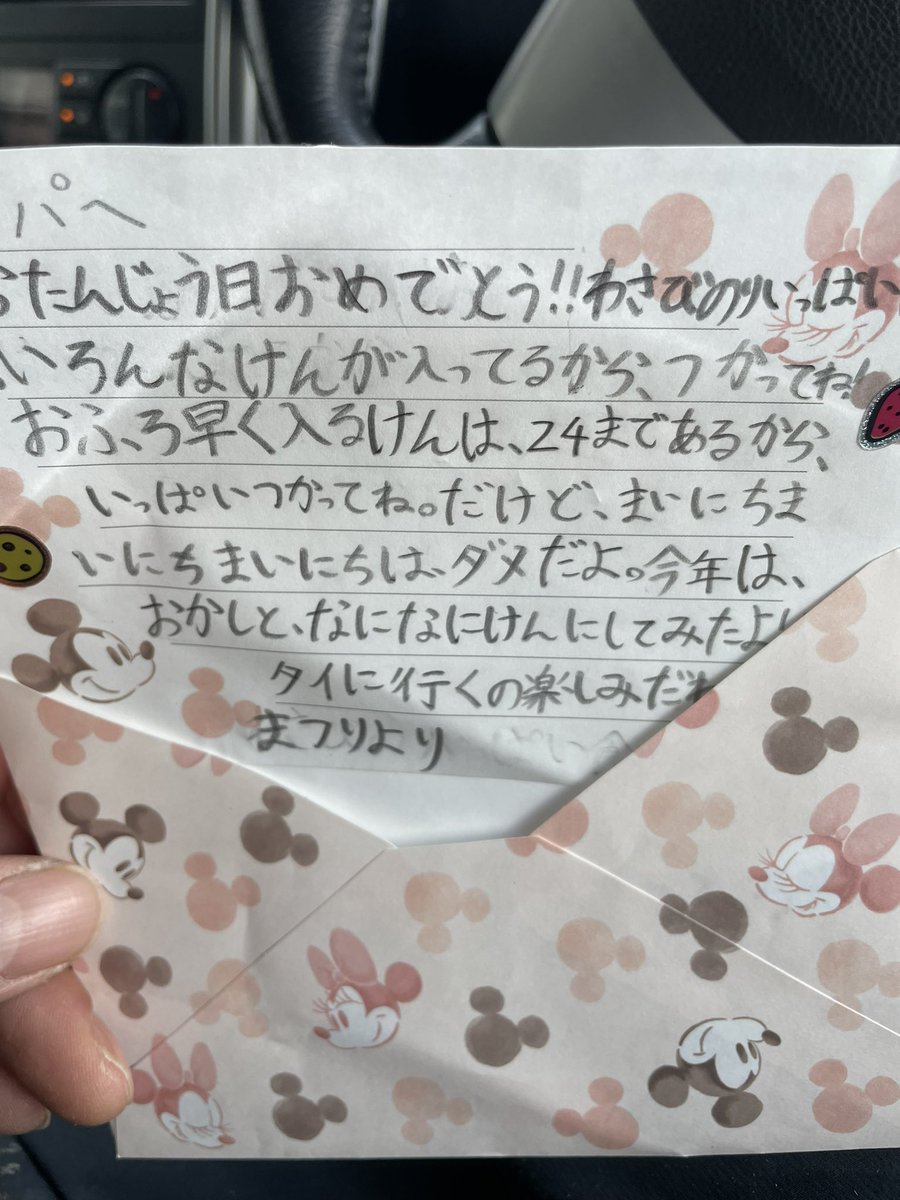 パへ
おたんじょう日おめでとう!!わさびのりいっぱい
いろんなけんが入ってるから、つかってね!
おふろ早く入るけんは、24まであるから、
いっぱいつかってね。だけど、まいにちま
いにちまいにちは、ダメだよ。今年は、
おかしと、なになにけんにしてみたよ!
タイに行くの楽しみだね
まつりより